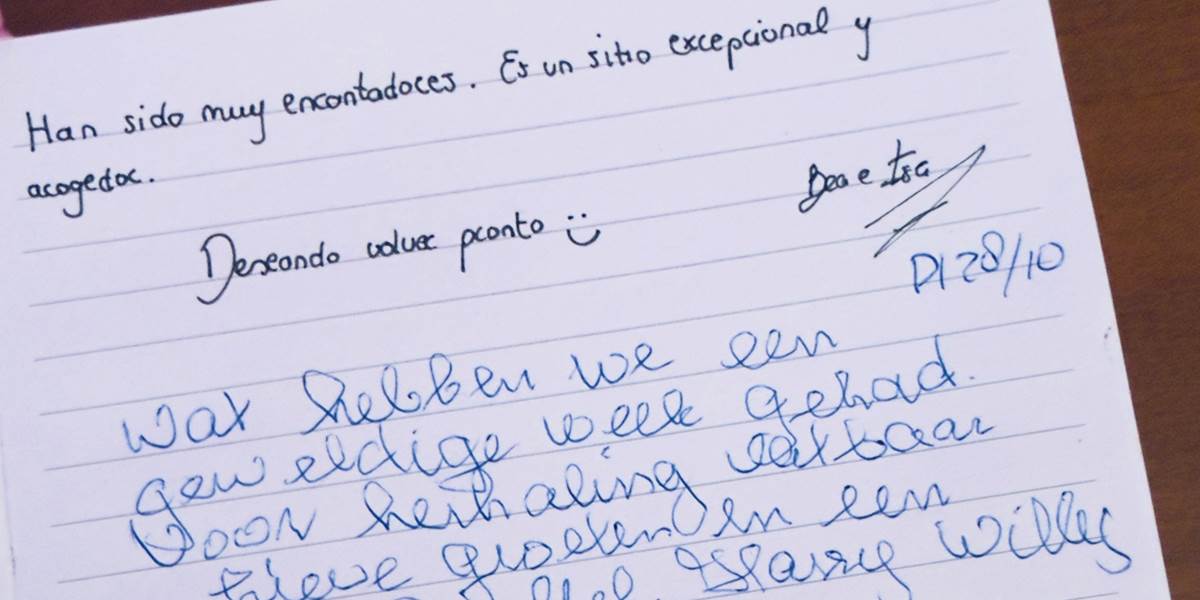 Han sido muy encantadores. Es un sitio excepcional y
acogedor.
Bea e Isa
Deseando volver pronto :)
DI 28/10
Wat hebben we een
geweldige week gehad.
Voor herhaling vatbaar
lieve groeten en een
Harry Willy